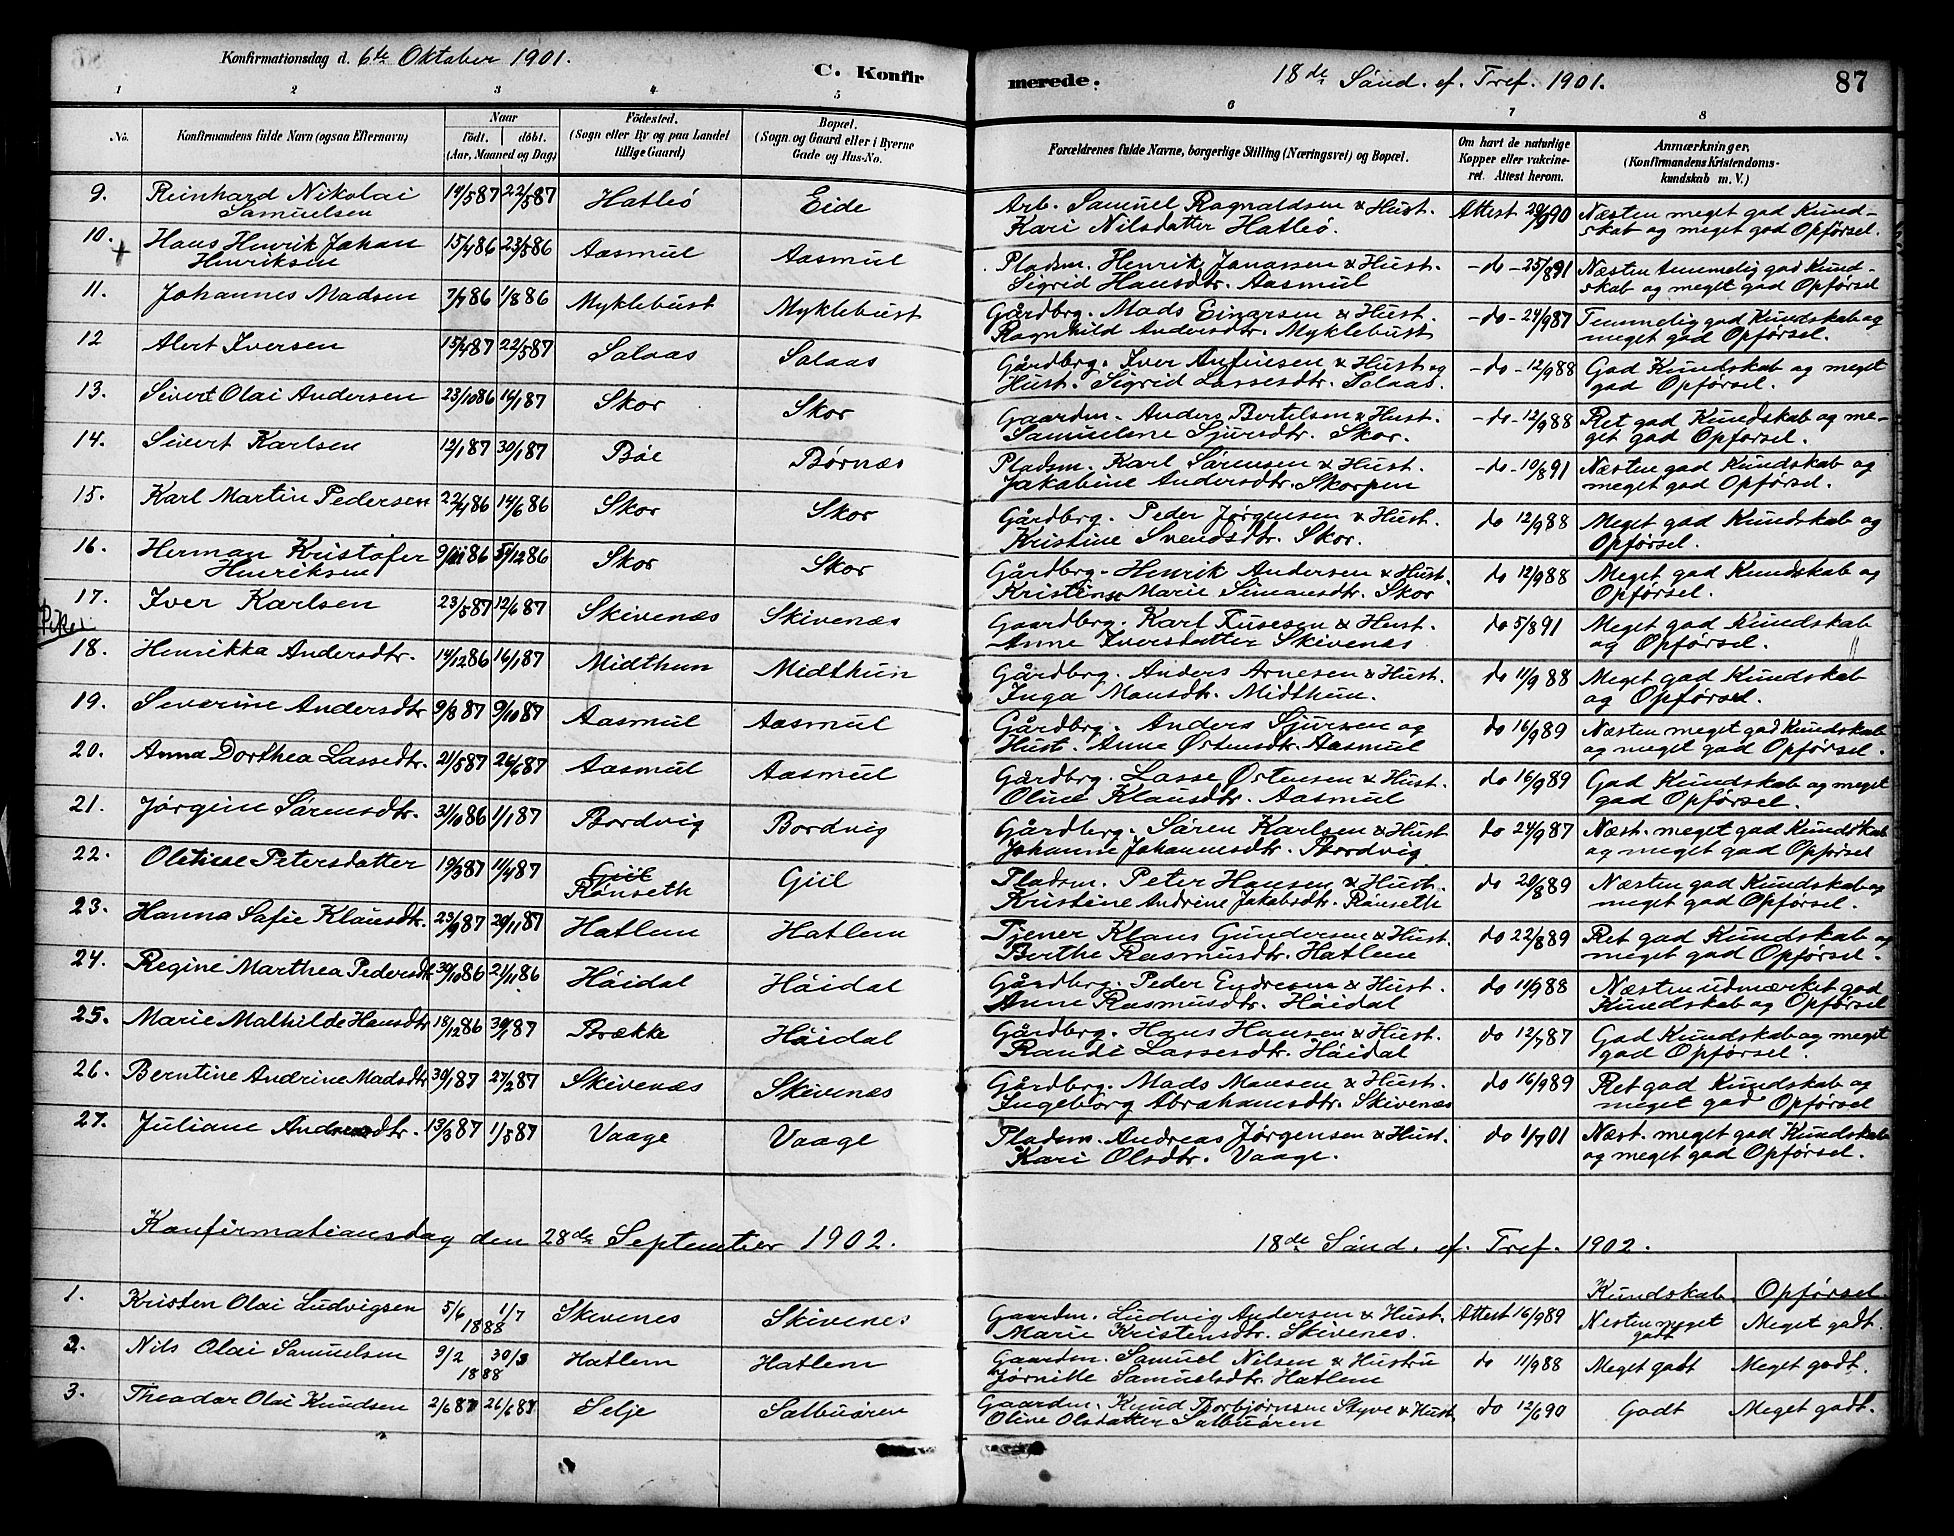 Konfirmationsdag d. 6te Oktober 1901.
C. Konfirmerede.
18de Sønd. ef. Tref. 1901.
87
1 2 3 4 5 6 7 8
No. Konfirmandens fulde Navn (ogsaa Efternavn) Naar født. døbt. (Aar, Maaned og Dag) Fødested. (Sogn eller By og paa Landet tillige Gaard) Bopæl. (Sogn og Gaard eller i Byerne Gade og Hus-No. Forældrenes fulde Navne, borgerlige Stilling (Næringsvei) og Bopæl. Om havt de naturlige Kopper eller vakcineret. Attest herom. Anmærkninger, (Konfirmandens Kristendomskundskab m. V.)
9. Reinhard Nikolai 14/5 87 22/5 87 Hatleø Eide Arb. Samuel Ragnaldsen & Hust. Attest 20/8 90 Næsten meget god Kund-
Samuelsen Kari Nilsdatter Hatleø. skab og meget god Opførsel.
10. Hans Henrik Johan 15/4 86 23/5 86 Aasmul Aasmul Pladsm. Henrik Jonassen & Hust. -do- 25/8 91 Næsten temmelig god Kund-
+ Henriksen Sigrid Hansdtr. Aasmul skab og meget god Opførsel
11. Johannes Madsen 7/7 86 1/8 86 Myklebust Myklebust Gårdbrg. Mads Einarsen & Hust. -do- 24/9 87 Temmelig god Kundskab og
Ragnhild Andersdtr. Myklebust meget god Opførsel.
12 Alert Iversen 15/4 87 22/5 87 Solaas Solaas Gårdbrg. Iver Anfinsen & Hust og -do- 12/9 88 God Kundskab og meget
Hust. Sigrid Lassesdtr. Solaas. god Opførsel.
13. Sivert Olai Andersen 23/10 86 14/1 87 Skor Skor Gaardm. Anders Bertelsen & Hust. -do- 12/9 88 Ret god Kundskab og me-
Samueline Sjursdtr. Skor. get god Opførsel.
14. Sivert Karlsen 12/1 87 30/1 87 Bøe Børnæs Pladsm. Karl Sørensen & Hust. -do- 10/8 91 Næsten god Kundskab og
Jakobine Andersdtr. Skorpen meget god Opførsel.
15. Karl Martin Pedersen 22/4 86 14/6 86 Skor Skor Gårdbrg. Peder Jørgensen & Hust. do 12/9 88 Meget god Kundskab og
Kristine Svendsdtr. Skor. Opførsel.
16. Herman Kristofer 86 5/12 86 Skor Skor Gårdbrg. Henrik Andersen & Hust. do 12/9 88 Meget god Kundskab og
Henriksen Kristine Marie Simonsdtr. Skor Opførsel.
17. Iver Karlsen 23/5 87 12/6 87 Skivenæs Skivenæs Gaardbrg. Karl Tusesen & Hust. do 5/8 91 Meget god Kundskab
Anne Iversdatter Skivenæs og Opførsel. "
Piker
18. Henrikka Andersdtr. 14/12 86 16/1 87 Midthun Midthun Gårdbrg. Anders Arnesen & Hust. do 11/9 88 Meget god Kundskab
Inga Monsdtr. Midthun. og Opførsel.
19. Severine Andersdtr 9/8 87 9/10 87 Aasmul Aasmul Gårdbrg. Anders Sjursen og do 16/9 89 Næsten meget god Kundskab
Hust. Anne Østensdtr. Aasmul og meget god Opførsel.
20. Anna Dorthea Lassedtr. 21/5 87 26/6 87 Aasmul Aasmul Gårdbrg. Lasse Østensen & Hust. do 16/9 89 God Kundskab og meget
Oline Klausdtr. Aasmul god Opførsel.
21. Jørgine Sørensdtr. 31/10 86 1/1 87 Bordvig Bordvig Gårdbrg. Søren Karlsen & Hust do 24/9 87 Næst. meget god Kundskab
Johanne Johannesdtr. Bordvig og meget god Opførsel
22. Oletisse Petersdatter 19/3 87 11/4 87 Giil Rønseth Giil Pladsm. Peter Hansen & Hust. do 20/8 89 Næsten god Kundskab og
Kristine Andrine Jakobsdtr. Rønseth meget god Opførsel.
23. Hanna Sofie Klausdtr. 23/9 87 20/11 87 Hatlem Hatlem Tjener Klaus Gundersen & Hust. do 22/8 89 Ret god Kundskab og
Berthe Rasmusdtr. Hatlem meget god Opførsel.
24. Regine Marthea Pedersdtr 30/10 86 21/11 86 Høidal Høidal Gårdbrg. Peder Endresen & Hust. do 11/9 88 Næsten udmærket god
Anne Rasmusdtr. Høidal Kundskab og Opførsel
25. Marie Mathilde Hansdtr 18/12 86 30/1 87 Brække Høidal Gårdbrg. Hans Hansen & Hust. do 12/7 87 God Kundskab og meget
Randi Lassesdtr. Høidal god Opførsel.
26. Berntine Andrine Madsdtr 30/1 87 27/2 87 Skivenæs Skivenæs Gårdbrg. Mads Monsen & Hust. do 16/9 89 Ret god Kundskab og
Ingeborg Abrahamsdtr. Skivenæs meget god Opførsel
27. Juliane 13/3 87 1/5 87 Vaage Vaage Pladsm. Andreas Jørgensen & Hust. do 1/7 01 Næst. meget god Kundskab
Kari Olsdtr. Vaage. og meget god Opførsel.
Konfirmationsdag den 28de September 1902. 18de Sønd. ef. Tref. 1902.
Kundskab Opførsel
1. Kristen Olai Ludvigsen 5/6 1/7 1888 Skivenes Skivenes Gaardm. Ludvig Andersen & Hust. Attest 16/9 89 Nesten meget Meget godt.
Marie Kristensdtr. Skivenes. godt
2. Nils Olai Samuelsen 9/2 30/3 1888 Hatlem Hatlem Gaardm. Samuel Nilsen & Hustru do 11/9 88 Meget godt Meget godt.
Jørnitte Samuelsdtr. Hatlem
3. Theodor Olai Knudsen 2/6 87 26/6 87 Selje Salbuøren Gaardm. Knud Torbjørnsen Skyve & Hust. do 12/6 90 Godt Meget godt.
Oline Olsdatter Salbuøren